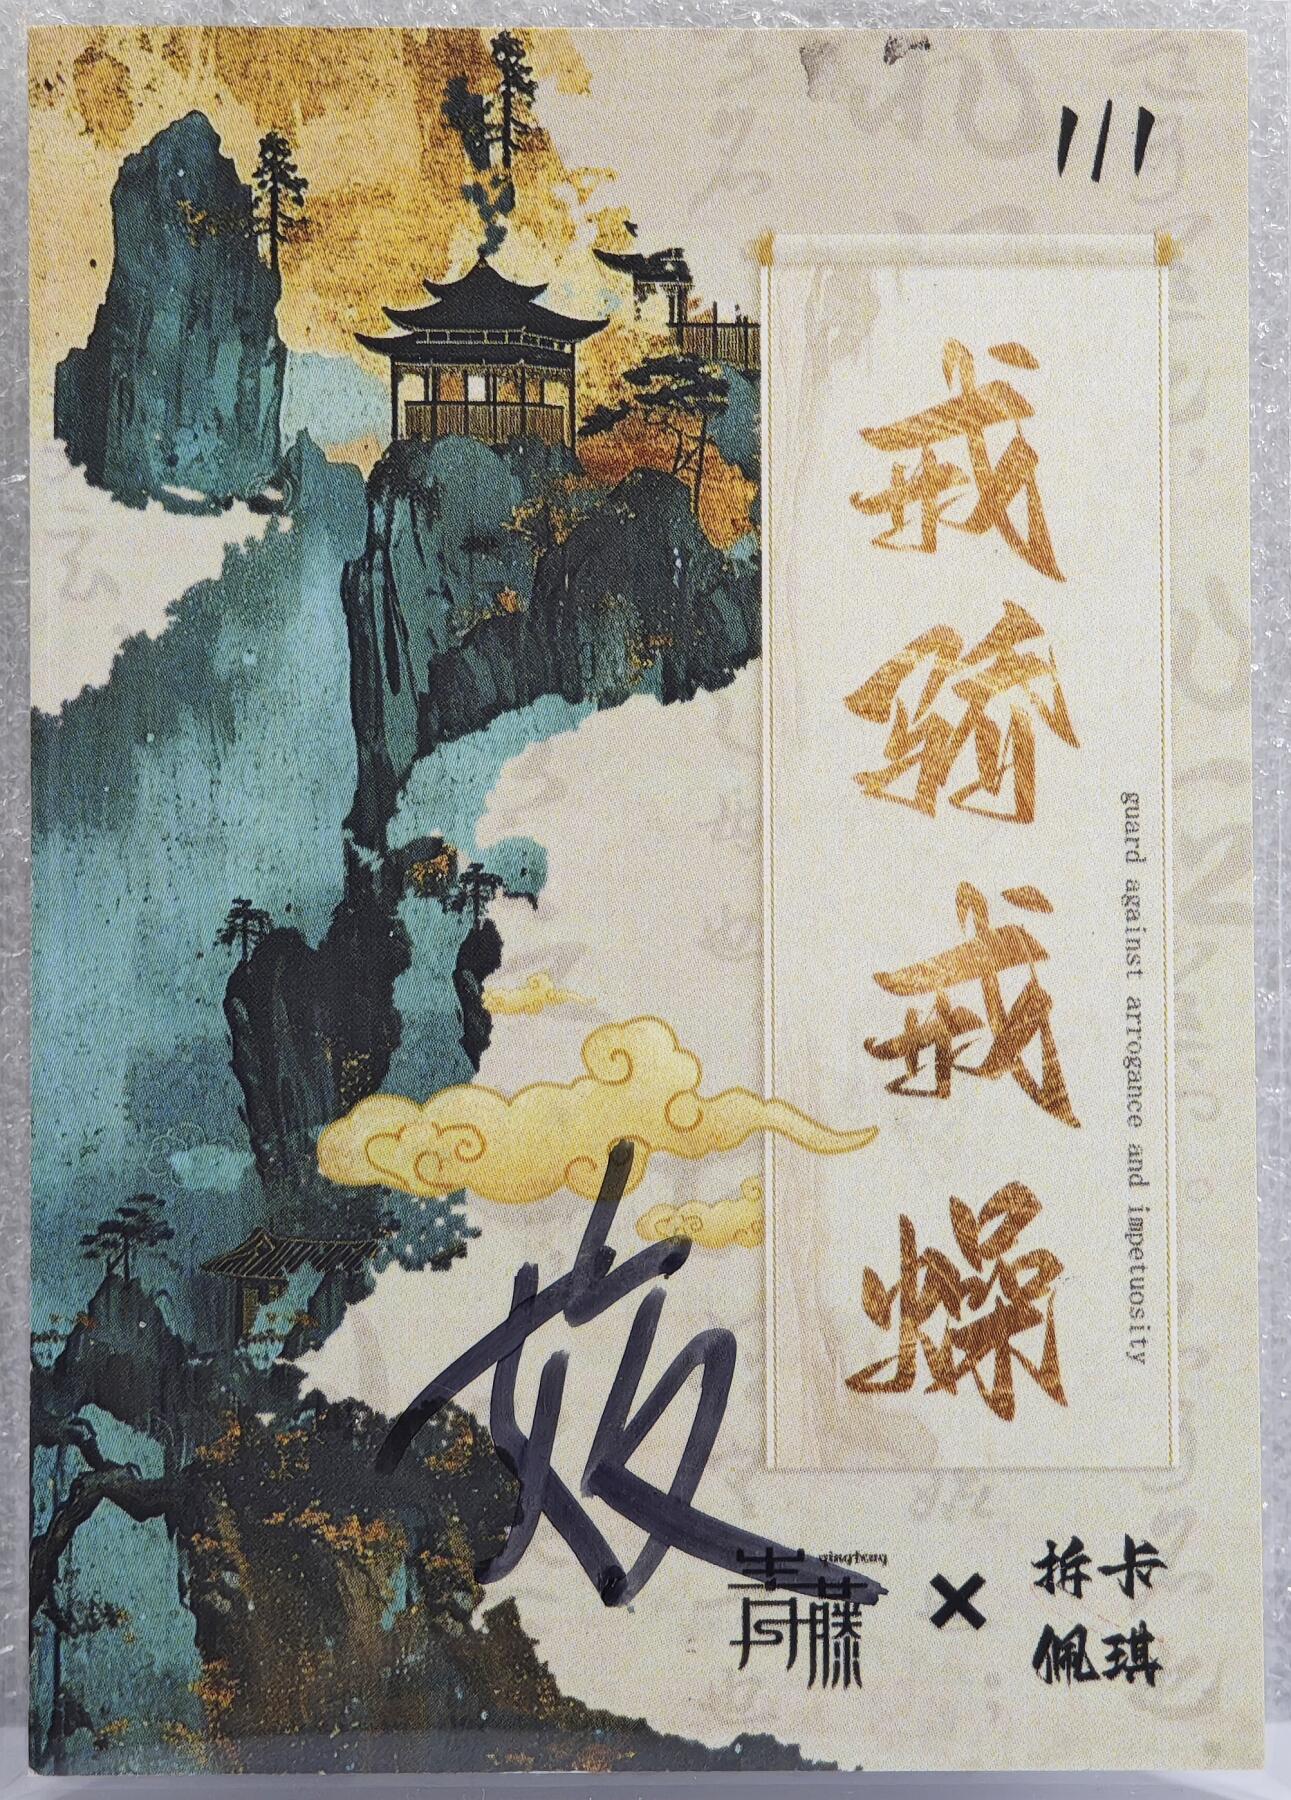 1/1
戒骄戒躁
guard against arrogance and impetuosity
qingteng
青藤
×
拆卡
佩琪